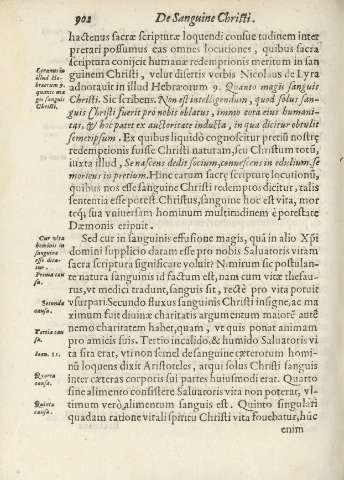 902
De Sanguine Christi.
hactenus sacræ scripturæ loquendi consuetudinem inter
pretari possumus eas omnes locutiones, quibus sacra
scriptura conijcit humanæ redemprionis meritum in san
guinem Christi, velut disertis verbis Nicolaus de Lyra
adnorauit in illud Hebræorum 9. Quanto magis sanguis
Christi. Sic scribens. Non est intelligendum, quod solus san-
guis Christi fuerit pro nobis oblatus, immo tota eius humani-
tas, & hoc patet ex auctoritate inducta, in qua dicitur obtulit
semetipsum. Ex quibus liquidò cognoscitur pretiũ nostræ
redemptionis fuisse Christi naturam, seu Christum totũ,
iuxta illud, Se nascens dedit socium, conuescens in edulium. se
moriens in pretium. Hinc earum sacræ scripturæ locutionũ,
quibus nos esse sanguine Christi redemptos dicitur, talis
sententia esse potest. Christus, sanguine hoc est vita, mor
teq; sua vniuersam hominum multitudinem è potestate
Dæmonis eripuit.
Sed cur in sanguinis effusione magis, quã in alio Xp̃i
domini supplicio datam esse pro nobis Saluatoris vitam
sacra scriptura significare voluit? Nimirum sic postulan-
te natura sanguinis id factum est, nam cum vitæ thesau-
rus, vt medici tradunt, sanguis sit, rectè pro vita potuit
vsurpari. Secundo fluxus sanguinis Christi insigne, ac ma
ximum fuit diuinæ charitatis argumentum maiorẽ autẽ
nemo charitatem habet, quam, vt quis ponat animam
pro amicis suis. Tertio in calido, & humido Saluatoris vi
ta sita erat, vti non semel de sanguine cæterorum homi-
nũ loquens dixit Aristoteles, atqui solus Christi sanguis
inter cæteras corporis sui partes huiusmodi erat. Quarto
sine alimento consistere Saluatoris vita non poterat, vl-
timum verò alimentum sanguis est. Quinto singulari
quadam ratione vitali spiritu Christi vita fouebatur, hũc
enim
Lyranus in
illud He-
bræorum 9.
quanto ma
gis sanguis
Christi.
Cur vita
hominis in
sanguine
esse dica-
tur.
Prima cau
sa.
Secunda
causa.
Tertia cau
sa.
Ioan. 15.
Quarta
causa.
Quinta
causa.